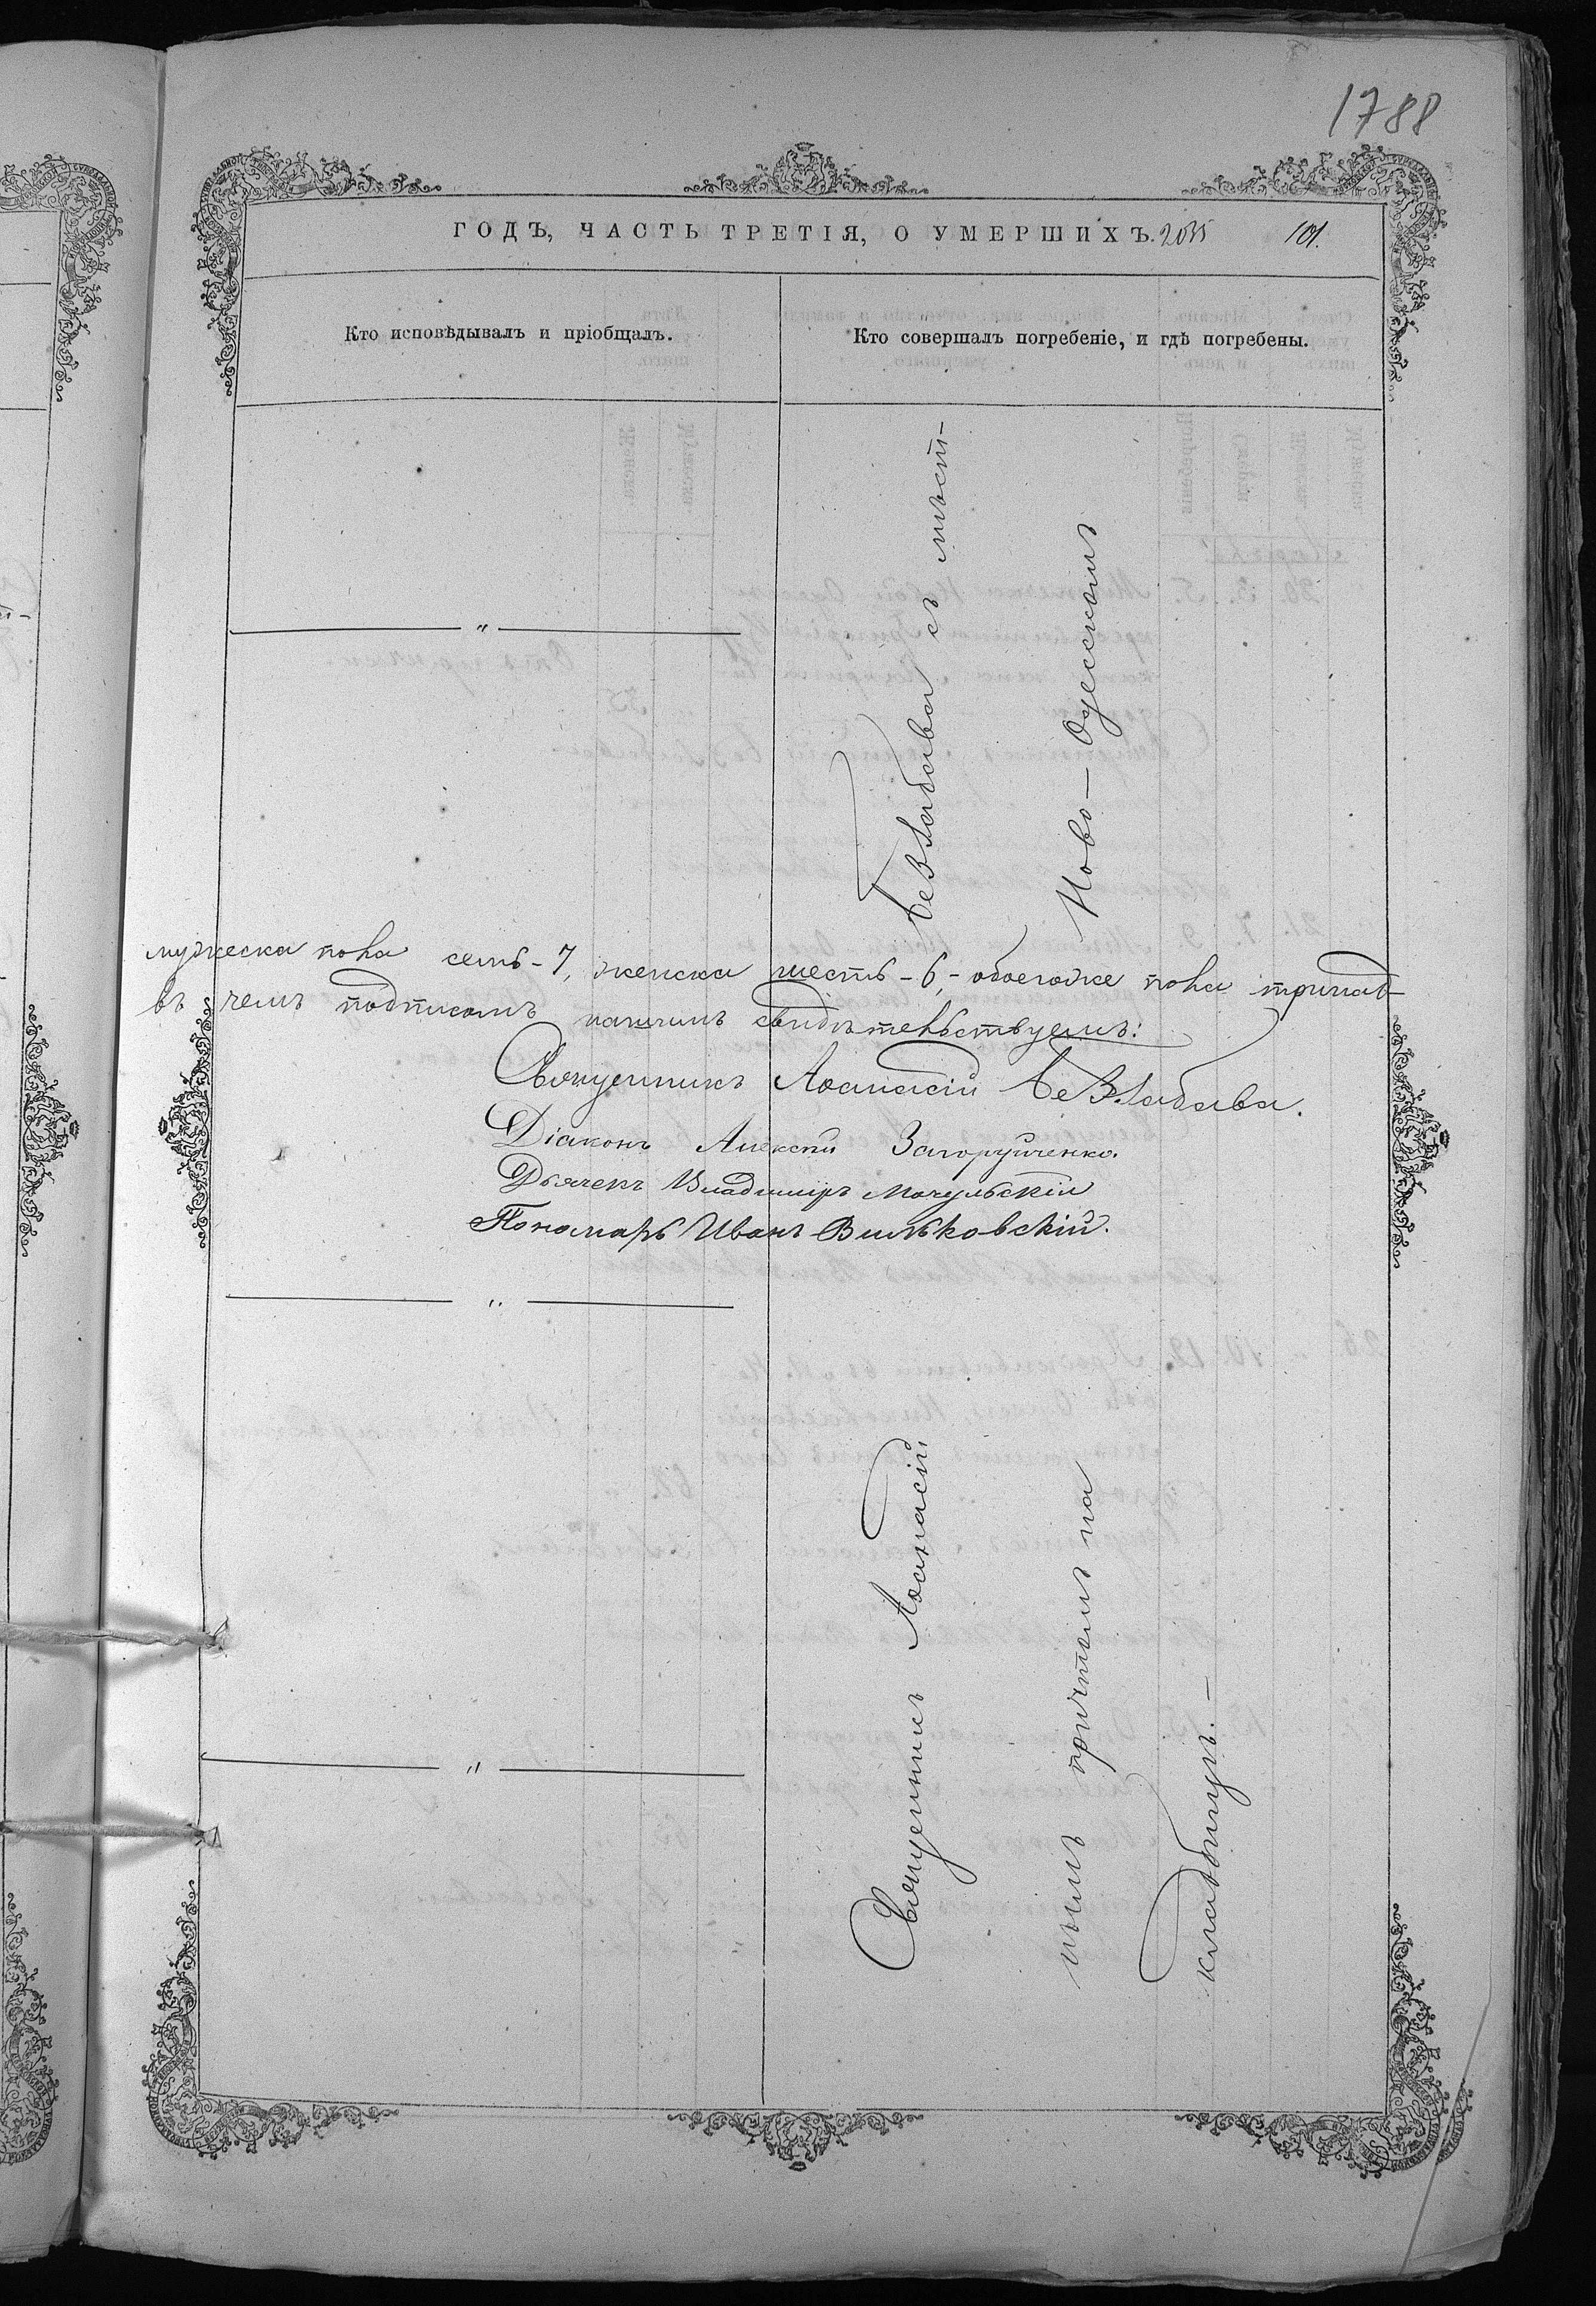 1788
ГОДЪ, ЧАСТЬ ТРЕТІЯ, О УМЕРШИХЪ.
101.
Кто исповѣдывалъ и пріобщалъ.
Кто совершалъ погребеніе, и гдѣ погребены.
Безлабава съ мѣст-
Ново - Одесскомъ
мужеска пола семь - 7, женска шесть - 6, - обоегоже пола тринад-
въ чемъ подписомъ нашимъ свидѣтельствуемъ:
Священникъ Аѳанасій Безлабава.
Діаконъ Алексѣй Загоруйченко.
Дьячекъ Владиміръ Мочульскій
Пономарь Иванъ Вильковскій.
Священникъ Аѳанасій
нымъ причтомъ на
кладбищѣ. -